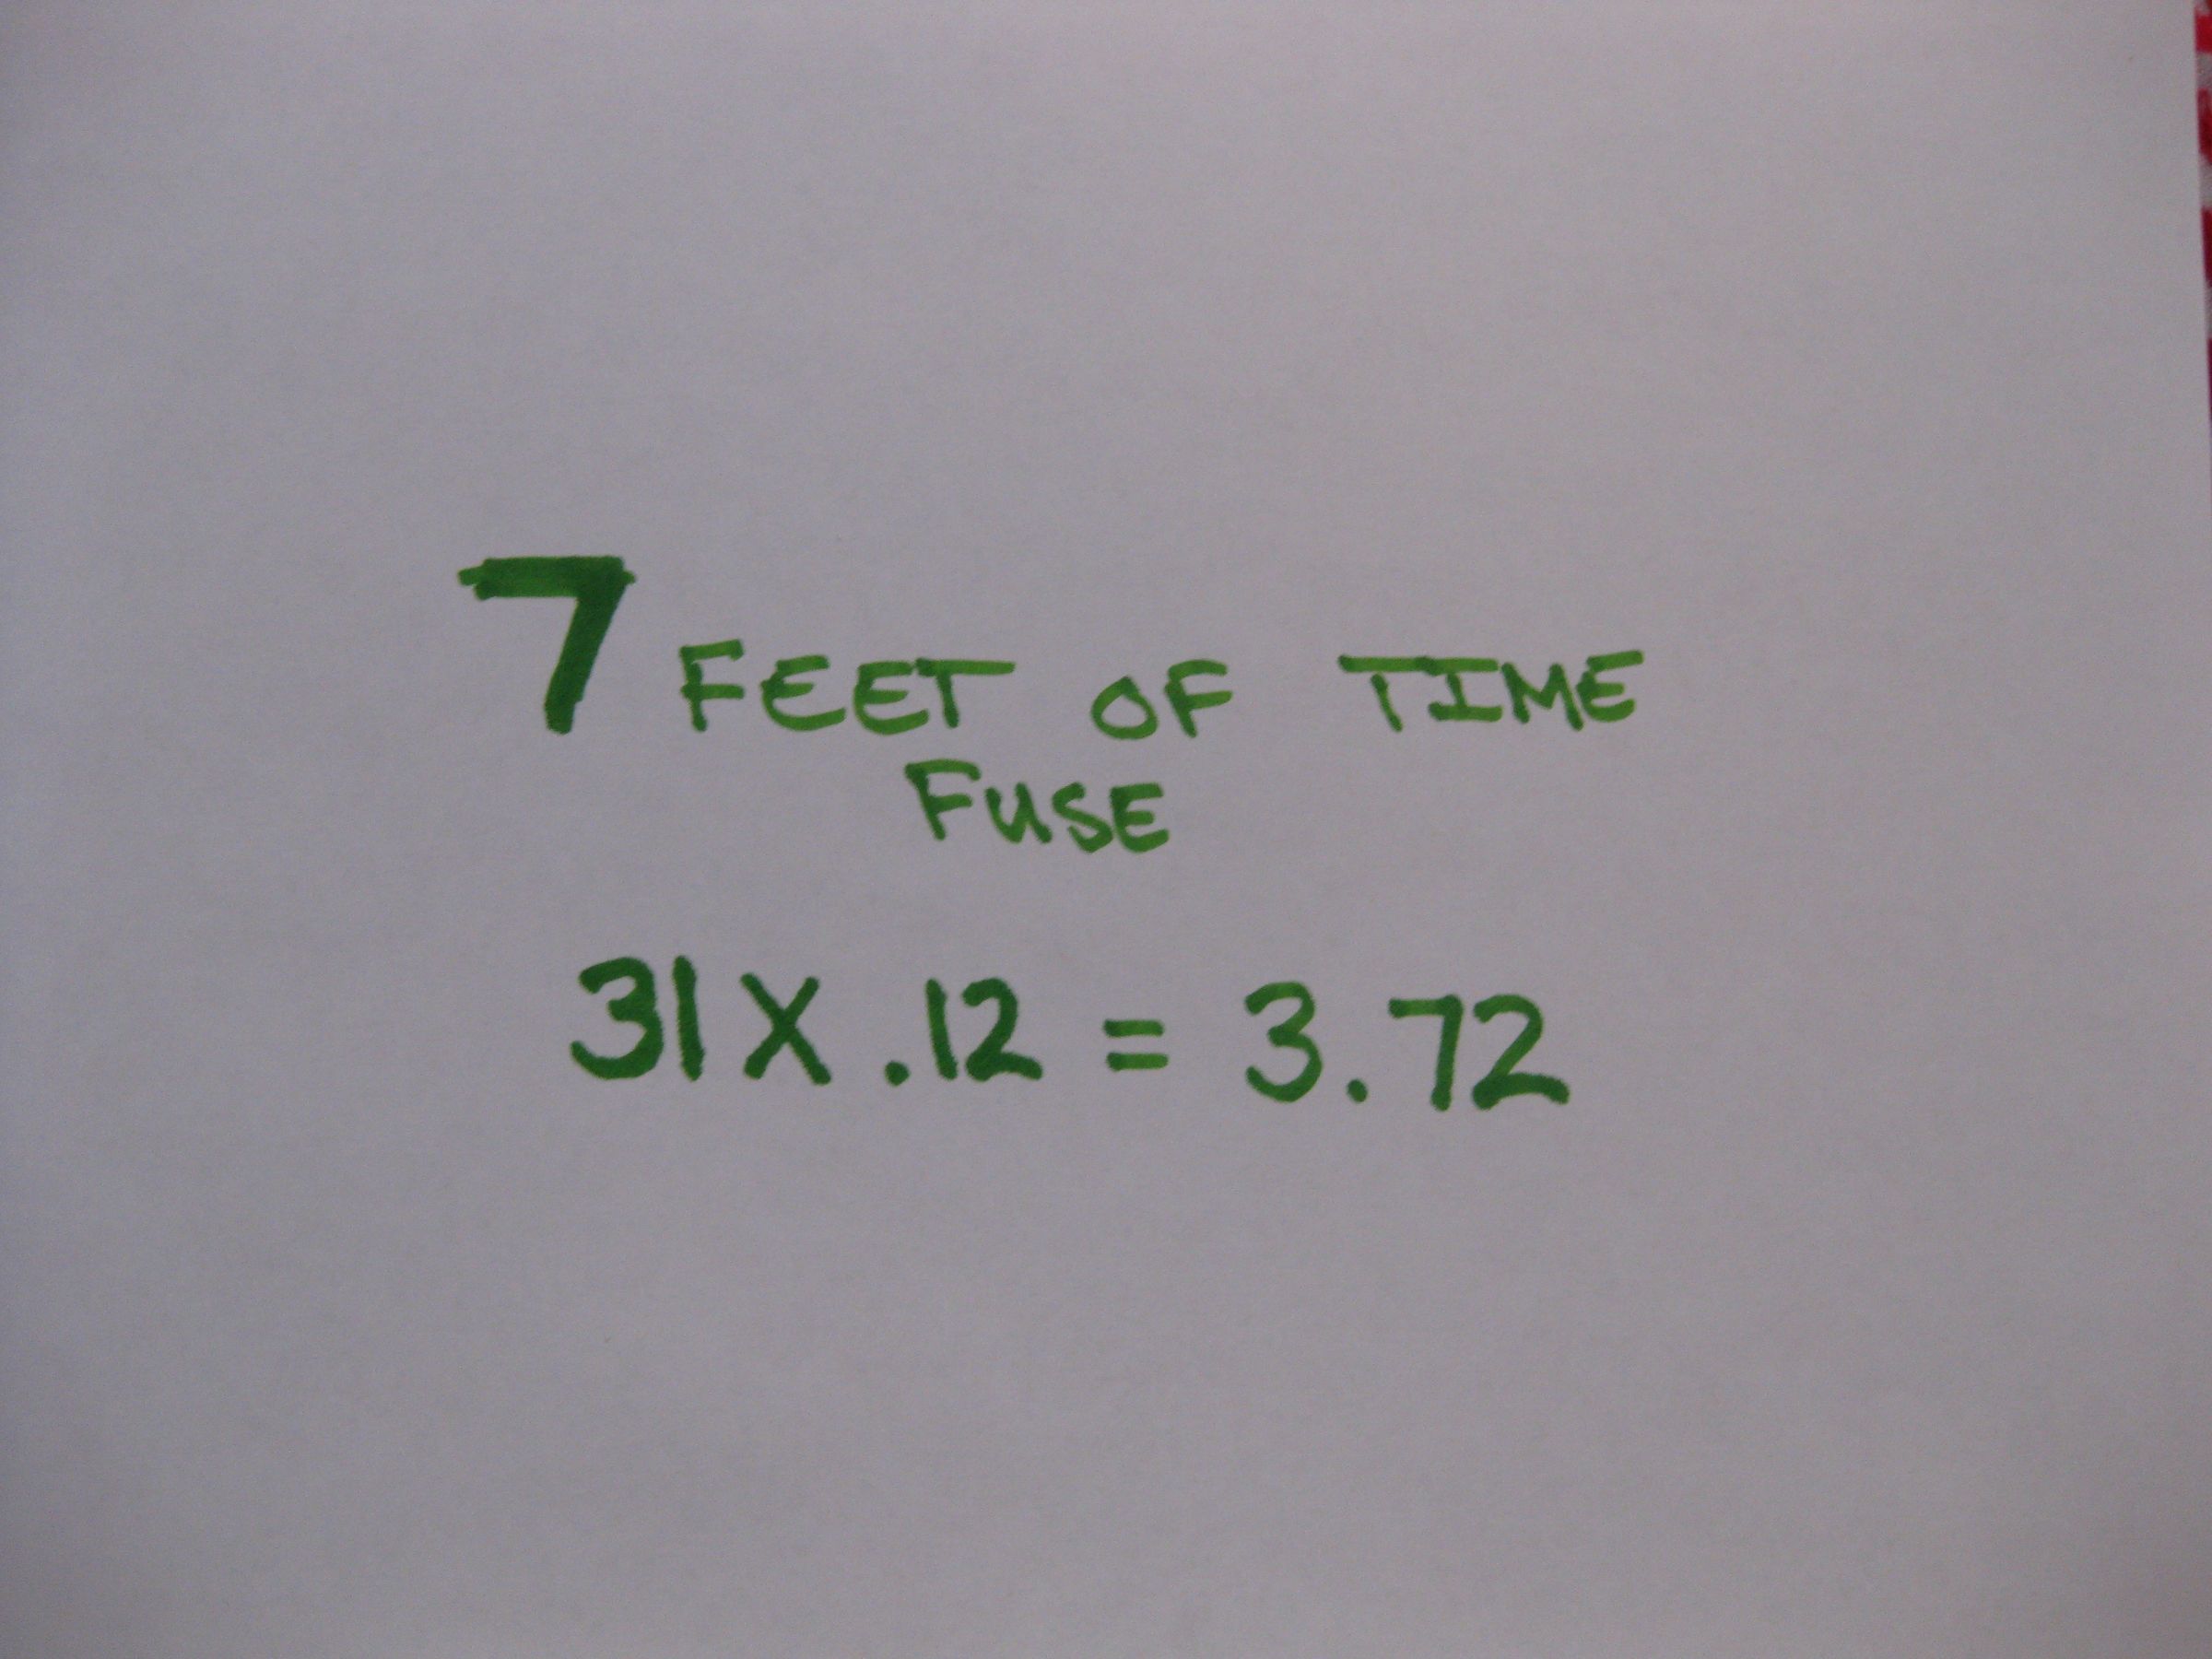 7 FEET OF TIME
FUSE
31 X .12 = 3.72